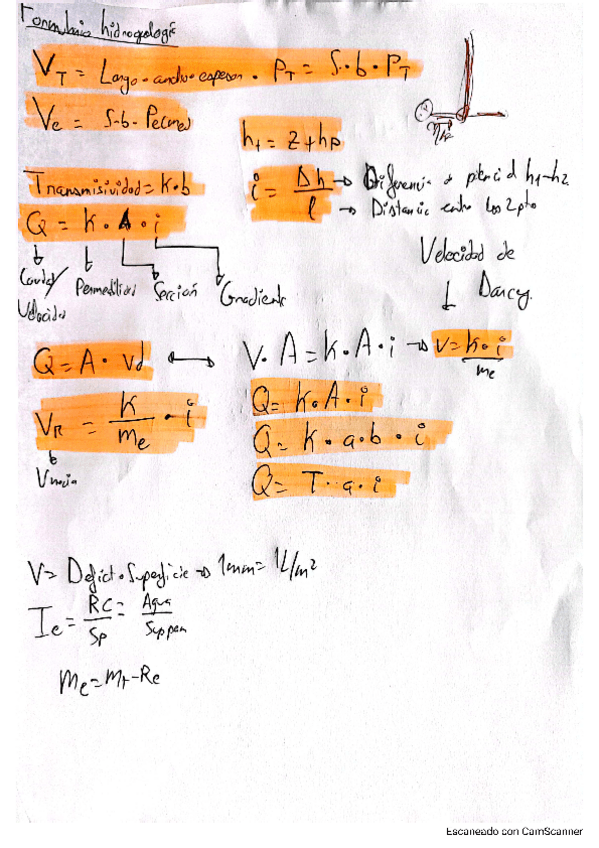 Formulario hidrogeología
V_T = Largo · ancho · espesor · P_T = S · b · P_T
V_e = S · b · Pe(me)
h_t = z + hp
Transmisividad = K · b
i = Δh / l
→ Diferencia de potencial h1-h2
→ Distancia entre los 2 pto
Q = K · A · i
Caudal/ Permeabilidad Sección Gradiente
Velocidad
Velocidad de
Darcy
Q = A · Vd ↔ V · A = K · A · i → V = K · i / me
V_R = K / me · i
Q = K · A · i
Q = K · a · b · i
Q = T · a · i
V = Deficit · Superficie → 1mm = 1L/m²
I_e = RC / Sp = Agua /
me = mt - Re
Escaneado con CamScanner